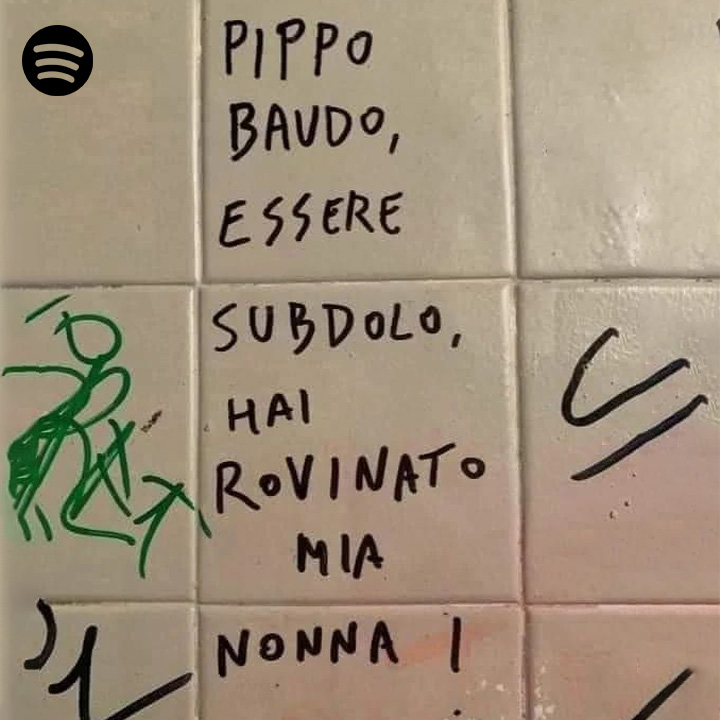 PIPPO
BAUDO,
ESSERE
SUBDOLO,
HAI
ROVINATO
MIA
NONNA!